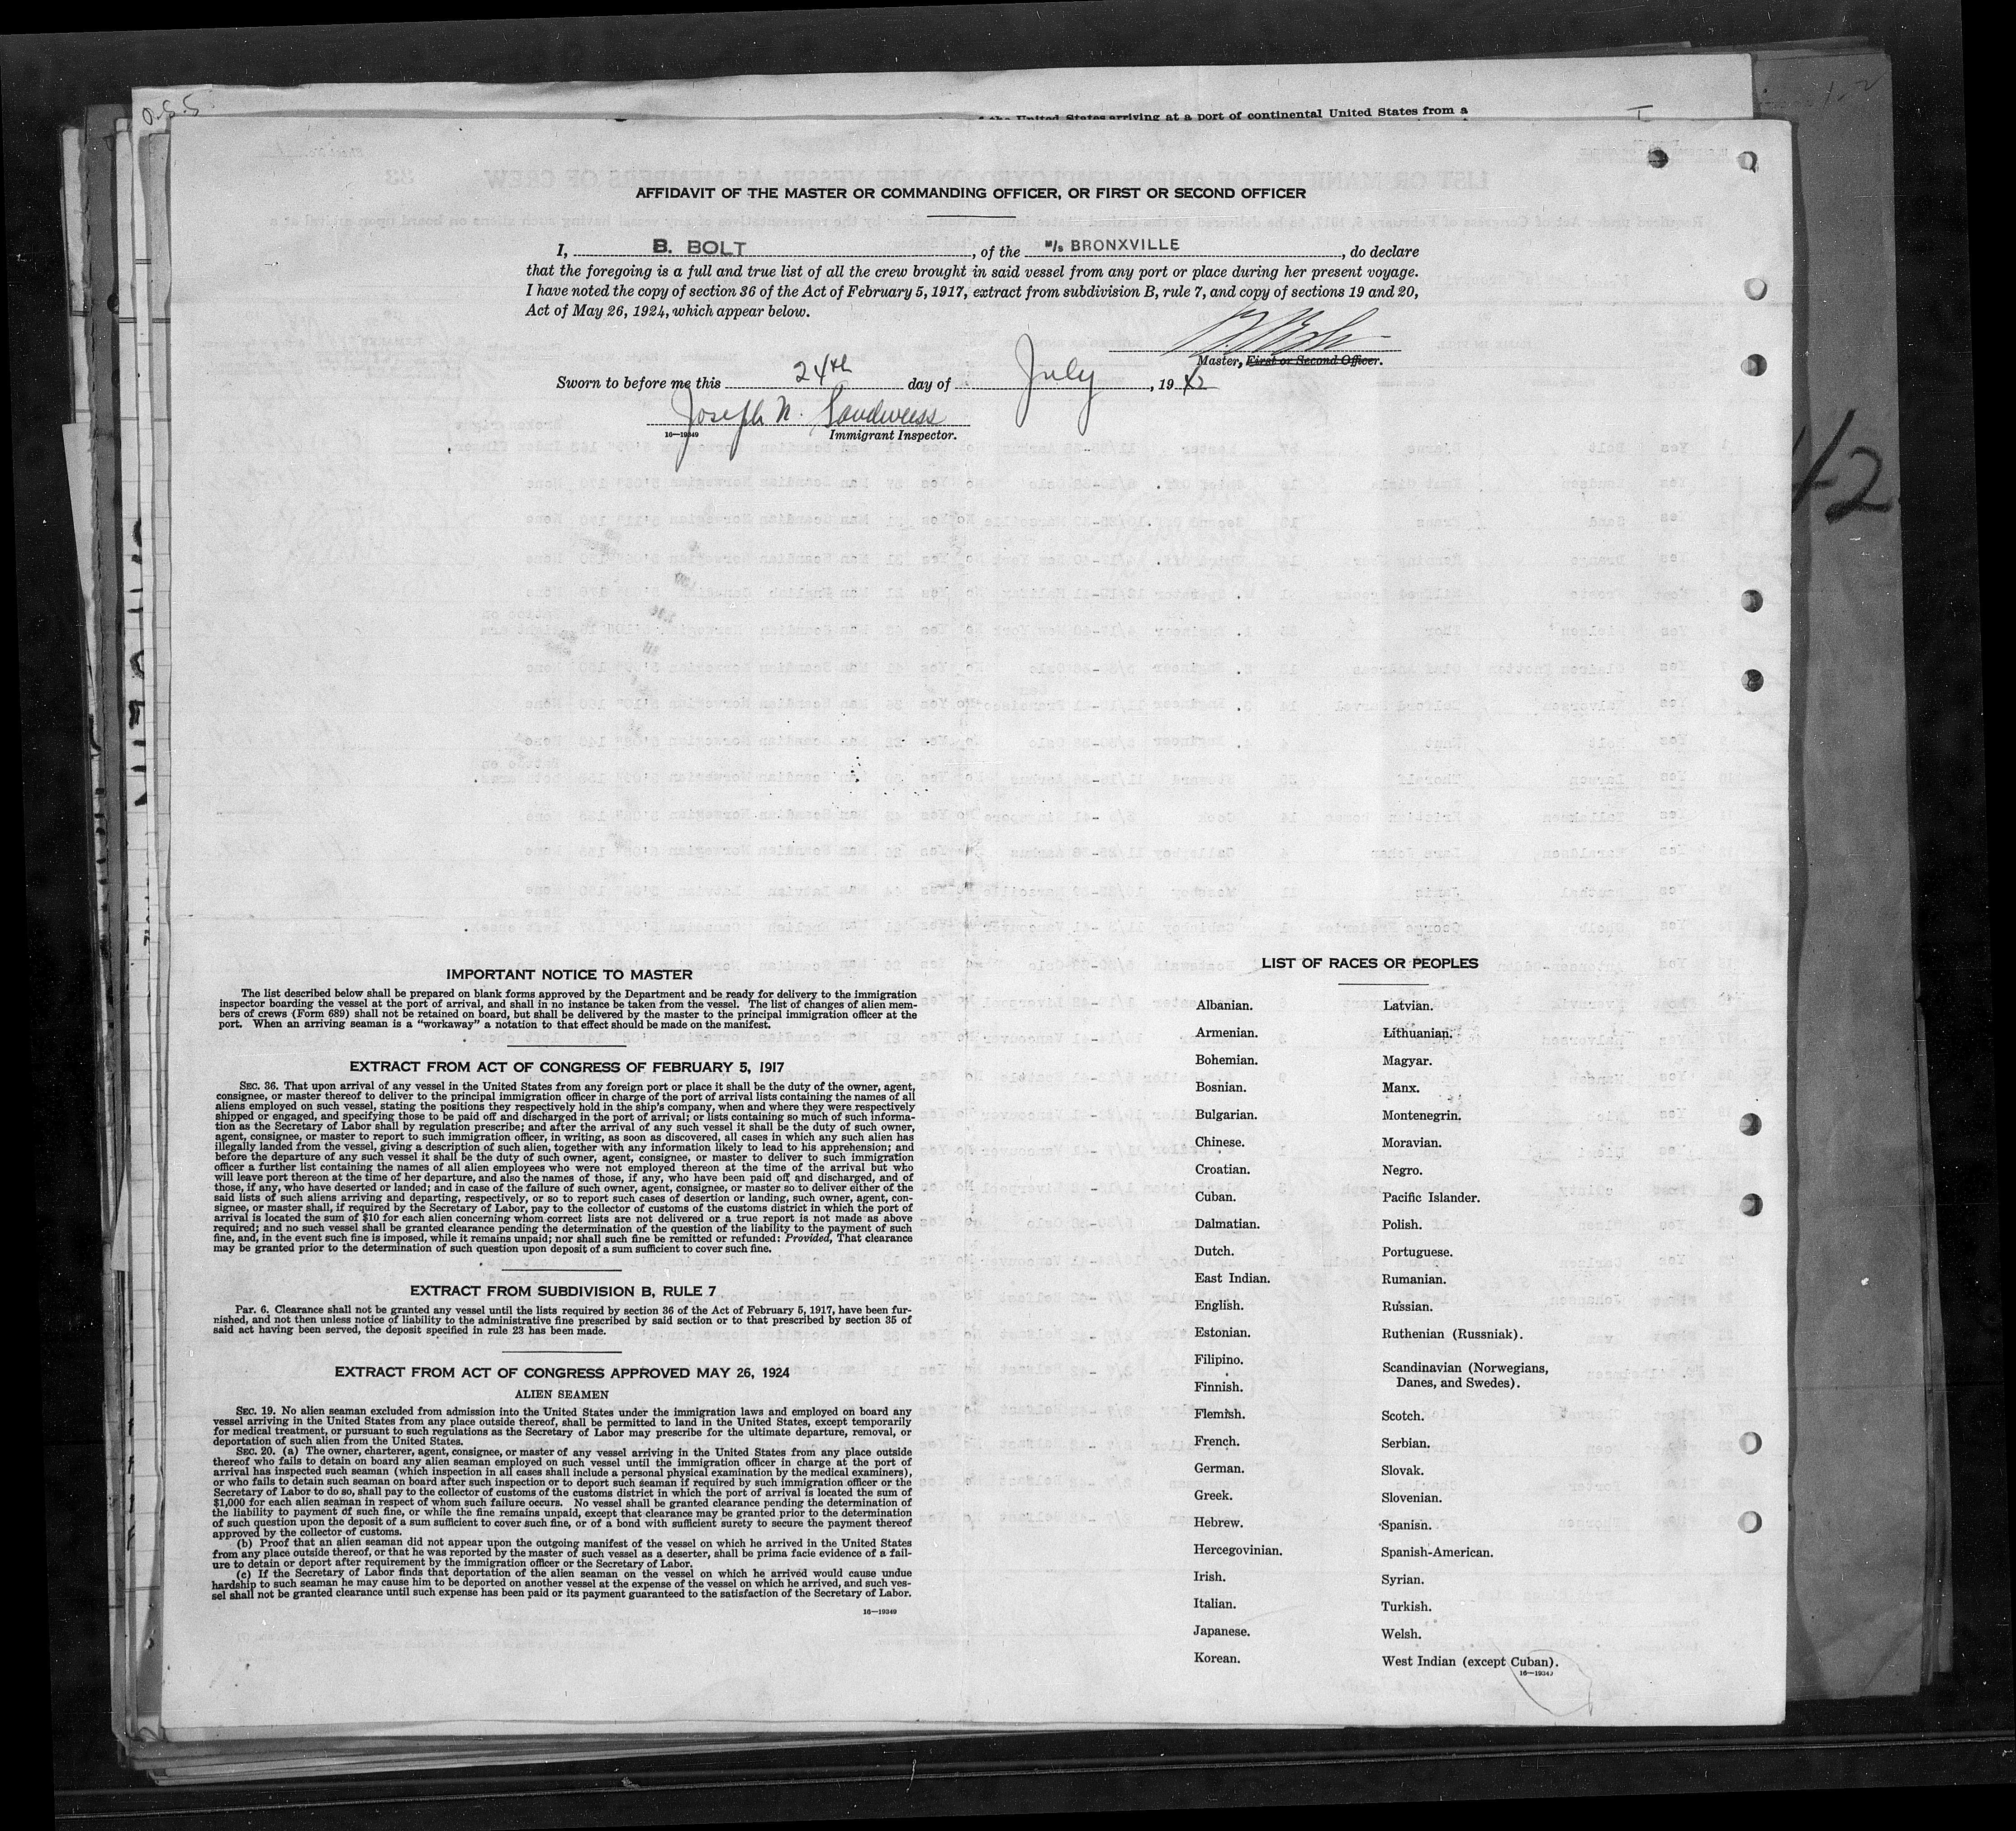 O.S.S.
the United States arriving at a port of continental United States from a
AFFIDAVIT OF THE MASTER OR COMMANDING OFFICER, OR FIRST OR SECOND OFFICER
I, B. BOLT, of the M/S BRONXVILLE, do declare
that the foregoing is a full and true list of all the crew brought in said vessel from any port or place during her present voyage.
I have noted the copy of section 36 of the Act of February 5, 1917, extract from subdivision B, rule 7, and copy of sections 19 and 20,
Act of May 26, 1924, which appear below.
B. Bolt
Master, First or Second Officer.
Sworn to before me this 24th day of July, 1942
Joseph N. Sandweiss
16—19349 Immigrant Inspector.
42
IMPORTANT NOTICE TO MASTER
The list described below shall be prepared on blank forms approved by the Department and be ready for delivery to the immigration
inspector boarding the vessel at the port of arrival, and shall in no instance be taken from the vessel. The list of changes of alien mem-
bers of crews (Form 689) shall not be retained on board, but shall be delivered by the master to the principal immigration officer at the
port. When an arriving seaman is a "workaway" a notation to that effect should be made on the manifest.
EXTRACT FROM ACT OF CONGRESS OF FEBRUARY 5, 1917
SEC. 36. That upon arrival of any vessel in the United States from any foreign port or place it shall be the duty of the owner, agent,
consignee, or master thereof to deliver to the principal immigration officer in charge of the port of arrival lists containing the names of all
aliens employed on such vessel, stating the positions they respectively hold in the ship's company, when and where they were respectively
shipped or engaged, and specifying those to be paid off and discharged in the port of arrival; or lists containing so much of such informa-
tion as the Secretary of Labor shall by regulation prescribe; and after the arrival of any such vessel it shall be the duty of such owner,
agent, consignee, or master to report to such immigration officer, in writing, as soon as discovered, all cases in which any such alien has
illegally landed from the vessel, giving a description of such alien, together with any information likely to lead to his apprehension; and
before the departure of any such vessel it shall be the duty of such owner, agent, consignee, or master to deliver to such immigration
officer a further list containing the names of all alien employees who were not employed thereon at the time of the arrival but who
will leave port thereon at the time of her departure, and also the names of those, if any, who have been paid off and discharged, and of
those, if any, who have deserted or landed; and in case of the failure of such owner, agent, consignee, or master so to deliver either of the
said lists of such aliens arriving and departing, respectively, or so to report such cases of desertion or landing, such owner, agent, con-
signee, or master shall, if required by the Secretary of Labor, pay to the collector of customs of the customs district in which the port of
arrival is located the sum of $10 for each alien concerning whom correct lists are not delivered or a true report is not made as above
required; and no such vessel shall be granted clearance pending the determination of the question of the liability to the payment of such
fine, and, in the event such fine is imposed, while it remains unpaid; nor shall such fine be remitted or refunded: Provided, That clearance
may be granted prior to the determination of such question upon deposit of a sum sufficient to cover such fine.
EXTRACT FROM SUBDIVISION B, RULE 7
Par. 6. Clearance shall not be granted any vessel until the lists required by section 36 of the Act of February 5, 1917, have been fur-
nished, and not then unless notice of liability to the administrative fine prescribed by said section or to that prescribed by section 35 of
said act having been served, the deposit specified in rule 23 has been made.
EXTRACT FROM ACT OF CONGRESS APPROVED MAY 26, 1924
ALIEN SEAMEN
SEC. 19. No alien seaman excluded from admission into the United States under the immigration laws and employed on board any
vessel arriving in the United States from any place outside thereof, shall be permitted to land in the United States, except temporarily
for medical treatment, or pursuant to such regulations as the Secretary of Labor may prescribe for the ultimate departure, removal, or
deportation of such alien from the United States.
SEC. 20. (a) The owner, charterer, agent, consignee, or master of any vessel arriving in the United States from any place outside
thereof who fails to detain on board any alien seaman employed on such vessel until the immigration officer in charge at the port of
arrival has inspected such seaman (which inspection in all cases shall include a personal physical examination by the medical examiners),
or who fails to detain such seaman on board after such inspection or to deport such seaman if required by such immigration officer or the
Secretary of Labor to do so, shall pay to the collector of customs of the customs district in which the port of arrival is located the sum of
$1,000 for each alien seaman in respect of whom such failure occurs. No vessel shall be granted clearance pending the determination of
the liability to payment of such fine, or while the fine remains unpaid, except that clearance may be granted prior to the determination
of such question upon the deposit of a sum sufficient to cover such fine, or of a bond with sufficient surety to secure the payment thereof
approved by the collector of customs.
(b) Proof that an alien seaman did not appear upon the outgoing manifest of the vessel on which he arrived in the United States
from any place outside thereof, or that he was reported by the master of such vessel as a deserter, shall be prima facie evidence of a fail-
ure to detain or deport after requirement by the immigration officer or the Secretary of Labor.
(c) If the Secretary of Labor finds that deportation of the alien seaman on the vessel on which he arrived would cause undue
hardship to such seaman he may cause him to be deported on another vessel at the expense of the vessel on which he arrived, and such ves-
sel shall not be granted clearance until such expense has been paid or its payment guaranteed to the satisfaction of the Secretary of Labor.
16—19349
LIST OF RACES OR PEOPLES
Albanian.
Armenian.
Bohemian.
Bosnian.
Bulgarian.
Chinese.
Croatian.
Cuban.
Dalmatian.
Dutch.
East Indian.
English.
Estonian.
Filipino.
Finnish.
Flemish.
French.
German.
Greek.
Hebrew.
Hercegovinian.
Irish.
Italian.
Japanese.
Korean.
Latvian.
Lithuanian.
Magyar.
Manx.
Montenegrin.
Moravian.
Negro.
Pacific Islander.
Polish.
Portuguese.
Rumanian.
Russian.
Ruthenian (Russniak).
Scandinavian (Norwegians,
Danes, and Swedes).
Scotch.
Serbian.
Slovak.
Slovenian.
Spanish.
Spanish-American.
Syrian.
Turkish.
Welsh.
West Indian (except Cuban).
16—19349